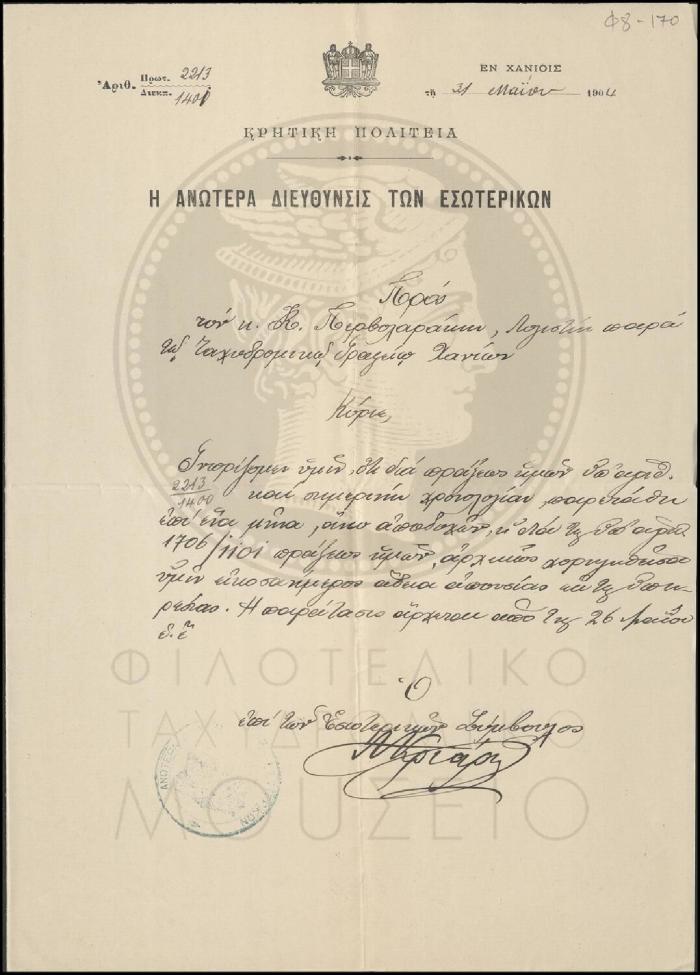 Φ8-170
Ἀριθ. Πρωτ. 2213
Διεκπ. 1400
ΕΝ ΧΑΝΙΟΙΣ
τῇ 31 Μαΐου 1904
ΚΡΗΤΙΚΗ ΠΟΛΙΤΕΙΑ
Η ΑΝΩΤΕΡΑ ΔΙΕΥΘΥΝΣΙΣ ΤΩΝ ΕΣΩΤΕΡΙΚΩΝ
Πρός
τόν κ. Κ. Περβολαράκην, Λογιστήν παρά
τῷ Ταχυδρομικῷ Γραφείῳ Χανίων
Κύριε,
Γνωρίζομεν ὑμῖν, ὅτι διά πράξεως ἡμῶν ὑπ' ἀριθ.
2213/1400 καί σημερινήν χρονολογίαν, παρετάθη
ἐπί ἕνα μῆνα, ἄνευ ἀποδοχῶν, ἡ διά τῆς ὑπ' ἀριθ.
1706/1101 πράξεως ἡμῶν, ἀρχικῶς χορηγηθεῖσα
ὑμῖν εἰκοσαήμερος ἄδεια ἀπουσίας ἐκ τῆς ὑπη-
ρεσίας. Ἡ παράτασις ἄρχεται ἀπό τῆς 26 Μαΐου
ἐ. ἔ.
Ὁ
ἐπί τῶν Ἐσωτερικῶν Σύμβουλος
ΦΙΛΟΤΕΛΙΚΟ
ΤΑΧΥΔΡΟΜΙΚΟ
ΜΟΥΣΕΙΟ